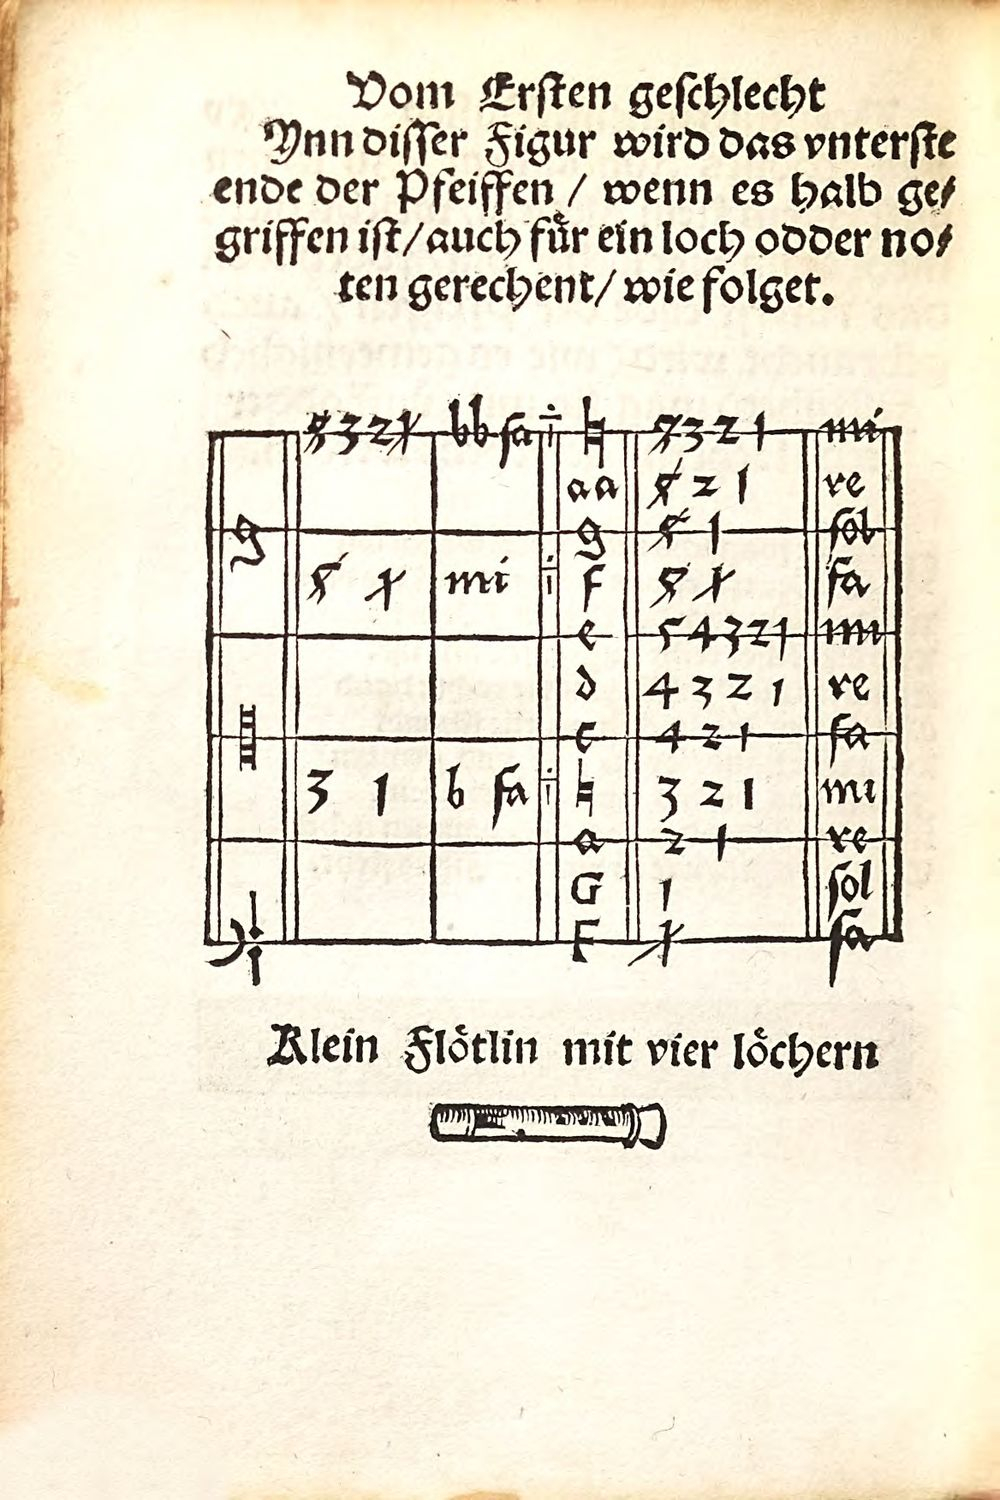 Vom Ersten geschlecht
Ynn disser Figur wird das vnterste
ende der Pfeiffen / wenn es halb ge⸗
griffen ist / auch fuͤr ein loch odder no⸗
ten gerechent / wie folget.
3 2 bb fa i ♮ 3 2 1 mi
aa 2 1 re
g g 1 sol
mi i f fa
e 5 4 3 2 1 mi
d 4 3 2 1 re
c 4 2 1 fa
3 1 b fa i ♮ 3 2 1 mi
a 2 1 re
G 1 sol
F fa
Klein Floͤtlin mit vier loͤchern